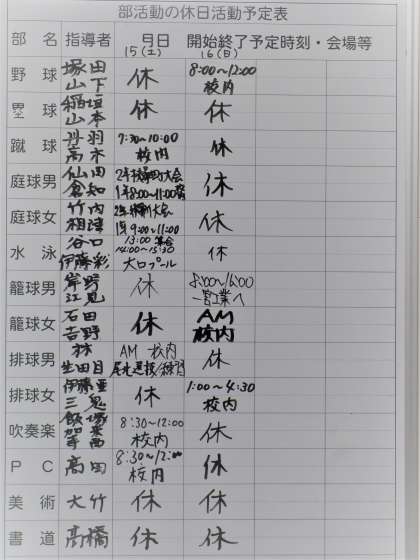 部活動の休日活動予定表
部 名 指導者 月日 開始終了予定時刻・会場等
15(土) 16(日)
野 球 塚田 山下 休 8:00~12:00 校内
塁 球 稲垣 山本 休 休
蹴 球 丹羽 高木 7:30~10:00 校内 休
庭球男 仙田 倉知 休
庭球女 竹内 相津 休
水 泳 谷口 伊藤彩 13:00 集合 14:00~15:30 大口プール 休
籠球男 岸野 江見 休 8:00~16:00 一宮工業へ
籠球女 石田 吉野 休 AM 校内
排球男 林 生田目 AM 校内 休
排球女 伊藤亜 三鬼 休 1:00~4:30 校内
吹奏楽 飯塚 8:30~12:00 校内 休
P C 高田 8:30~12:00 校内 休
美 術 大竹 休 休
書 道 高橋 休 休